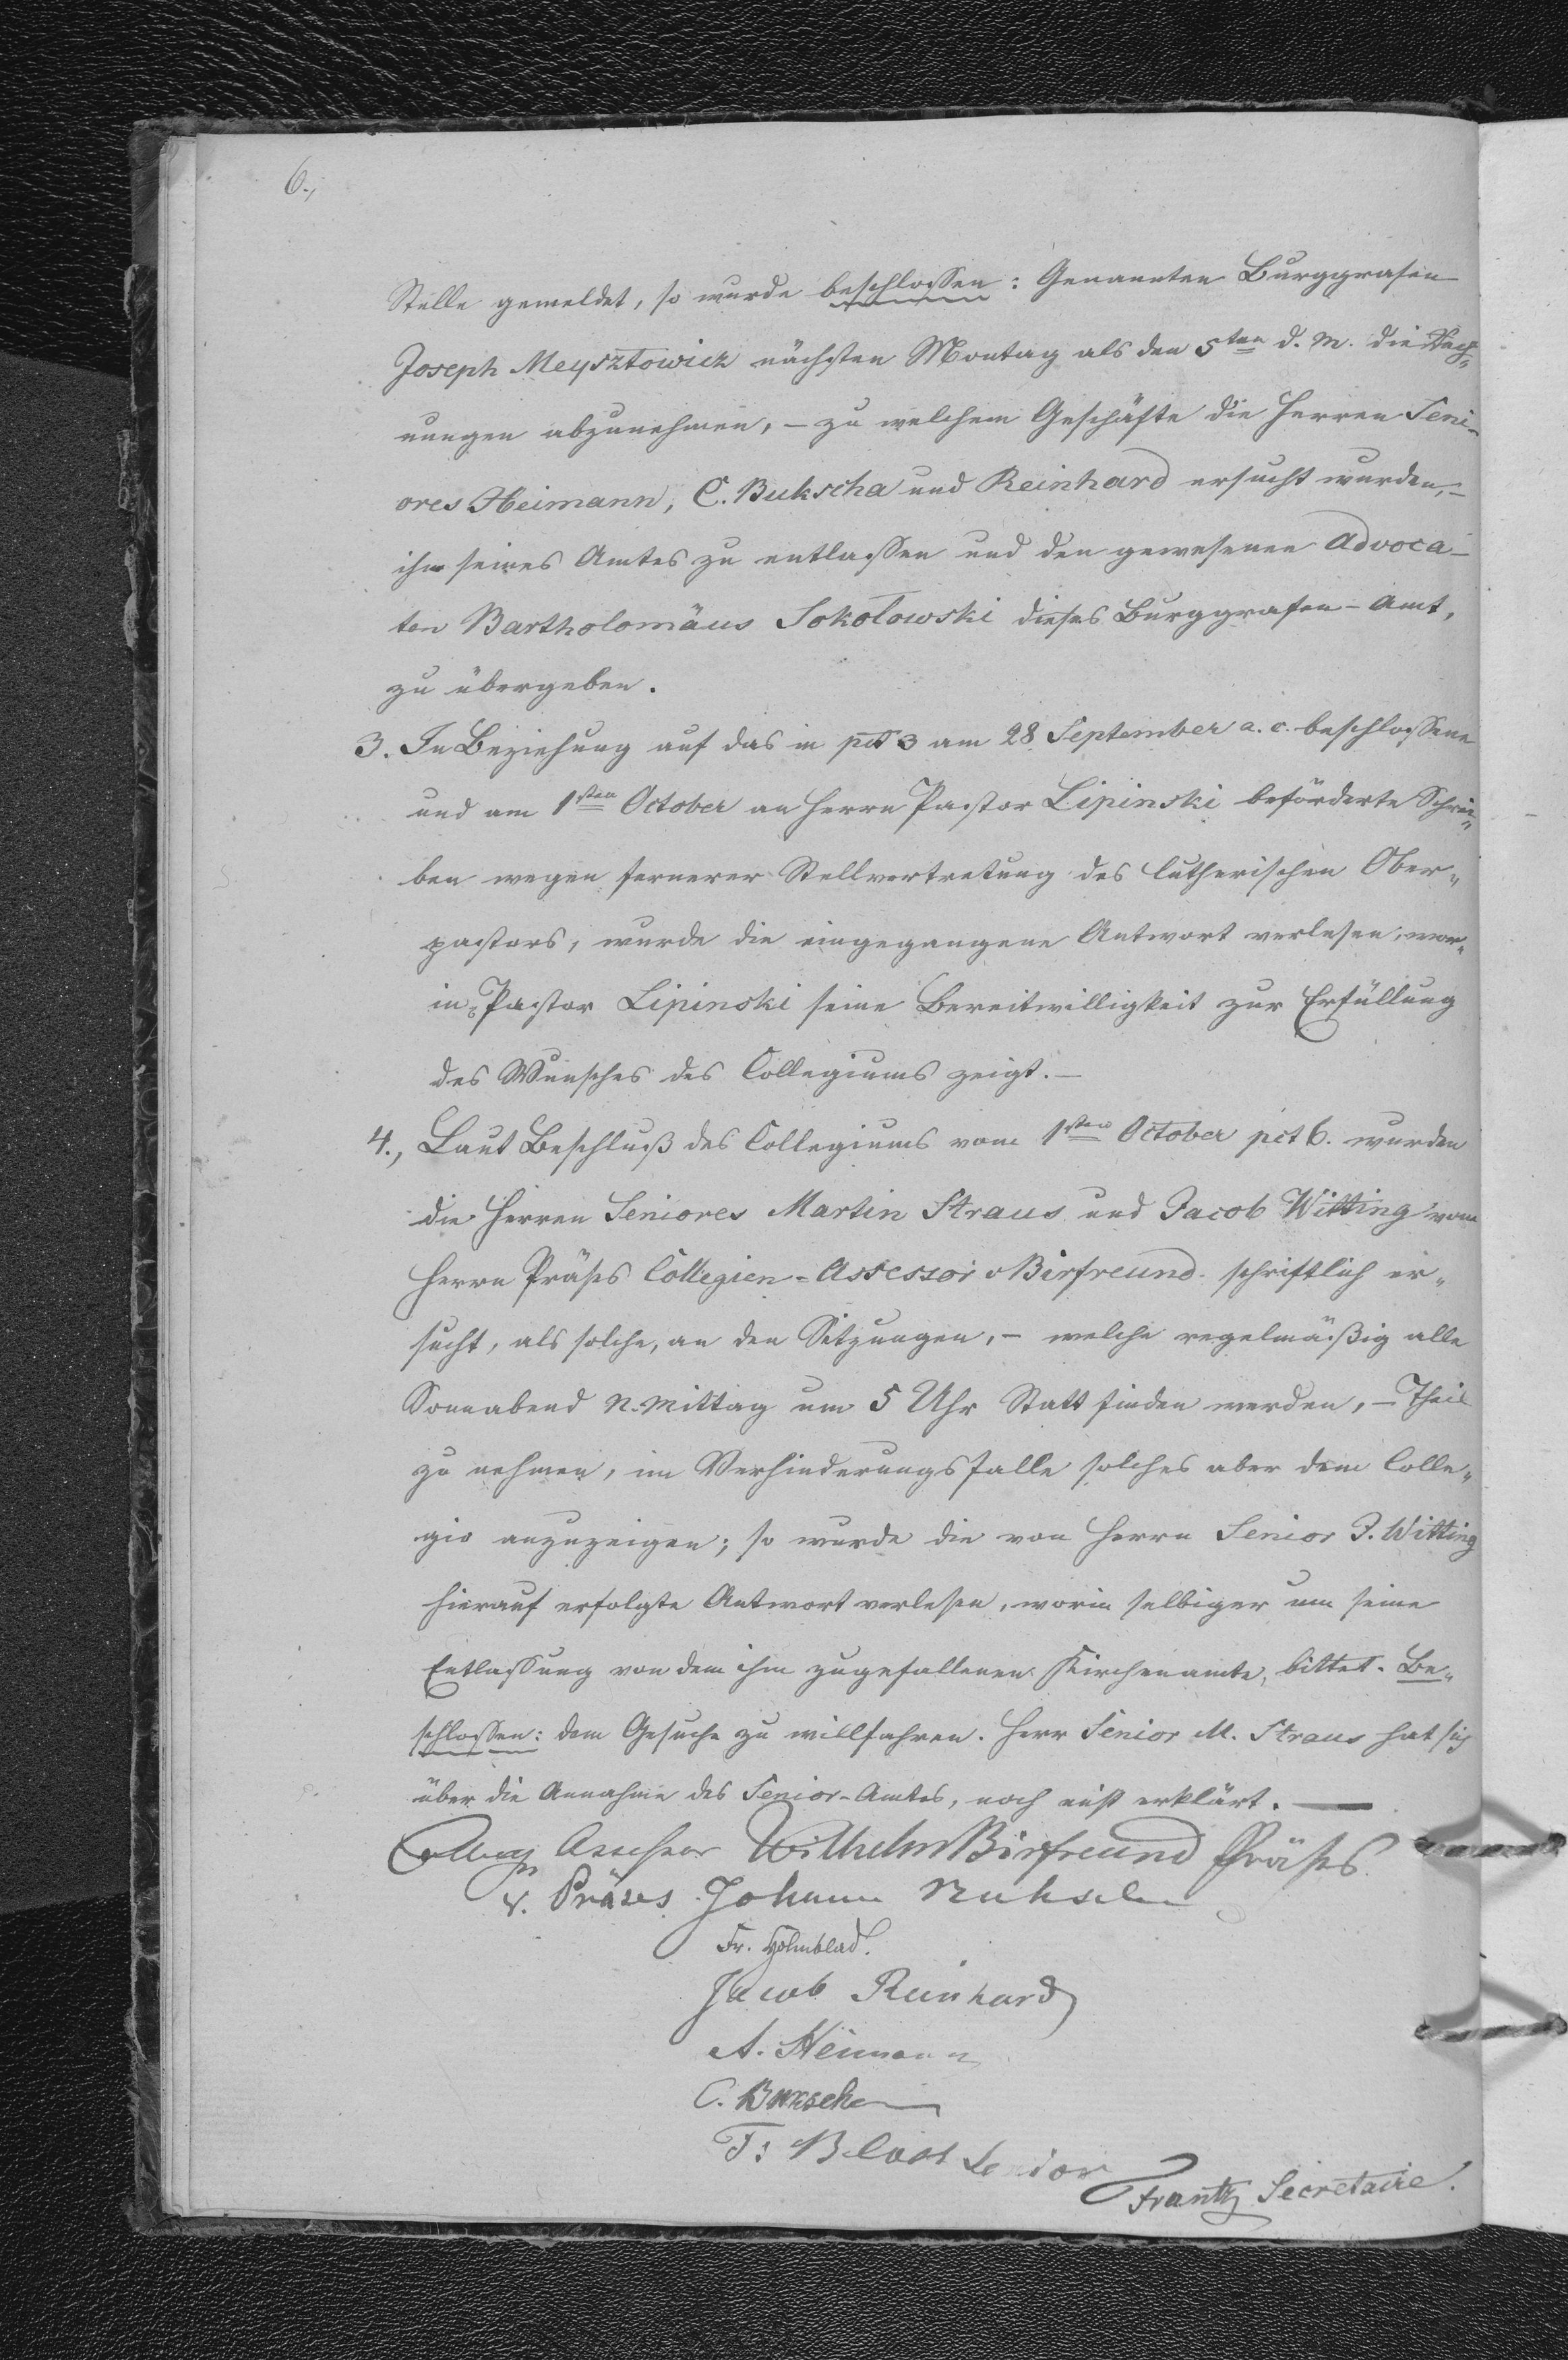 6.,
Stelle gemeldet, so wurde beschlossen: Genannten Burggrafen
Joseph Meysztowicz nächsten Montag als den 5ten d. M. die Rech„
nungen abzunehmen, – zu welchem Geschäfte die Herren Seni-
ores Heimann, C. Bukscha und Reinhard ersucht wurden, –
ihn seines Amtes zu entlassen und den gewesenen Advoca-
ten Bartholomäus Sokołowski dieses Burggrafen-Amt,
zu übergeben.
3. In Beziehung auf das in pct 3 am 28 September a. c. beschlossene
und am 1sten October an Herrn Pastor Lipinski beförderte Schrei„
ben wegen fernerer Stellvertretung des lutherischen Ober„
pastors, wurde die eingegangene Antwort verlesen, wor„
in Pastor Lipinski seine Bereitwilligkeit zur Erfüllung
des Wunsches des Collegiums zeigt. –
4., Laut Beschluß des Collegiums vom 1sten October pct 6. wurden
die Herren Seniores Martin Straus und Jacob Witting vom
Herrn Präses Collegien-Assessor v Birfreund schriftlich er„
sucht, als solche, an den Sitzungen, – welche regelmäßig alle
Sonnabend N.mittag um 5 Uhr Statt finden werden, – Theil
zu nehmen, im Verhinderungsfalle solches aber dem Colle„
gio anzuzeigen; so wurde die von Herrn Senior J. Witting
hierauf erfolgte Antwort verlesen, worin selbiger um seine
Entlassung von dem ihm zugefallenen Kirchenamte, bittet. Be„
schlossen: dem Gesuche zu willfahren. Herr Senior M. Straus hat sich
über die Annahme des Senior-Amtes, noch nicht erklärt. —
Assessor Wilhelm Birfreund Präses.
V. Präses Johann
Fr. Holmblad.
Jacob Reinhard
A. Heimann
C. Bukscha
Senior
Frantz Secretaire.